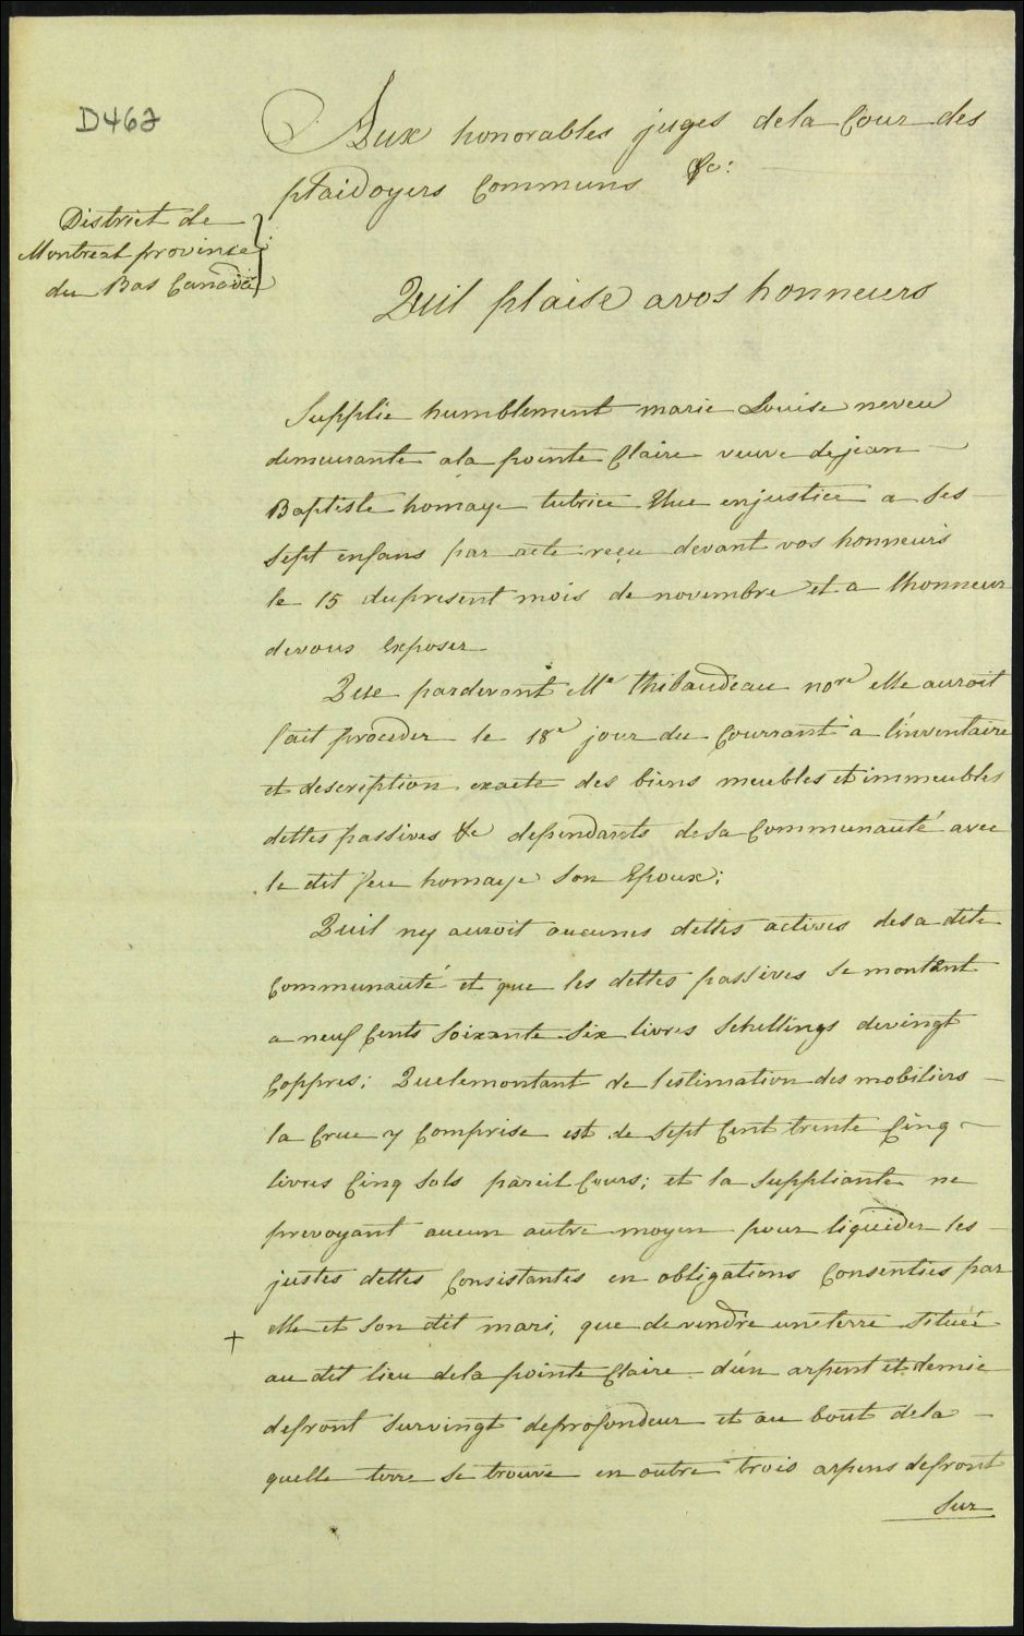 D467
Aux honorables juges dela Cour des
plaidoyers Communs &c:
District de
Montreal province
du Bas Canada
Quil plaise avos honneurs
Supplie humblement marie Louise neveu
demeurante ala pointe Claire veuve dejean
Baptiste homaye tutrice Elue enjustice a ses
sept enfans par acte reçu devant vos honneurs
le 15 dupresent mois de novembre et a lhonneur
devous Exposer
Que pardevant Me thibaudeau nore elle auroit
fait proceder le 18e jour du Courrant a l'inventaire
et description exacte des biens meubles et immeubles
dettes passives &c dependants desa Communauté avec
le dit feu homaye son Epoux;
Quil ny auroit aucunes dettes actives desa dite
Communauté et que les dettes passives se montent
a neuf Cents Soixante Six livres Schellings devingt
Coppres; Quelemontant de lestimation des mobiliers
la Crue y Comprise est de Sept Cent trente Cinq
livres Cinq Sols pareil Cours; et la Suppliante ne
prevoyant aucun autre moyen pour liquider les
justes dettes Consistantes en obligations Consenties par
+ elle et Son dit mari, que devendre uneterre Située
au dit lieu dela pointe Claire d'un arpent et demie
defront Survingt deprofondeur et au bout dela
quelle terre Se trouve en outre trois arpens defront
Sur